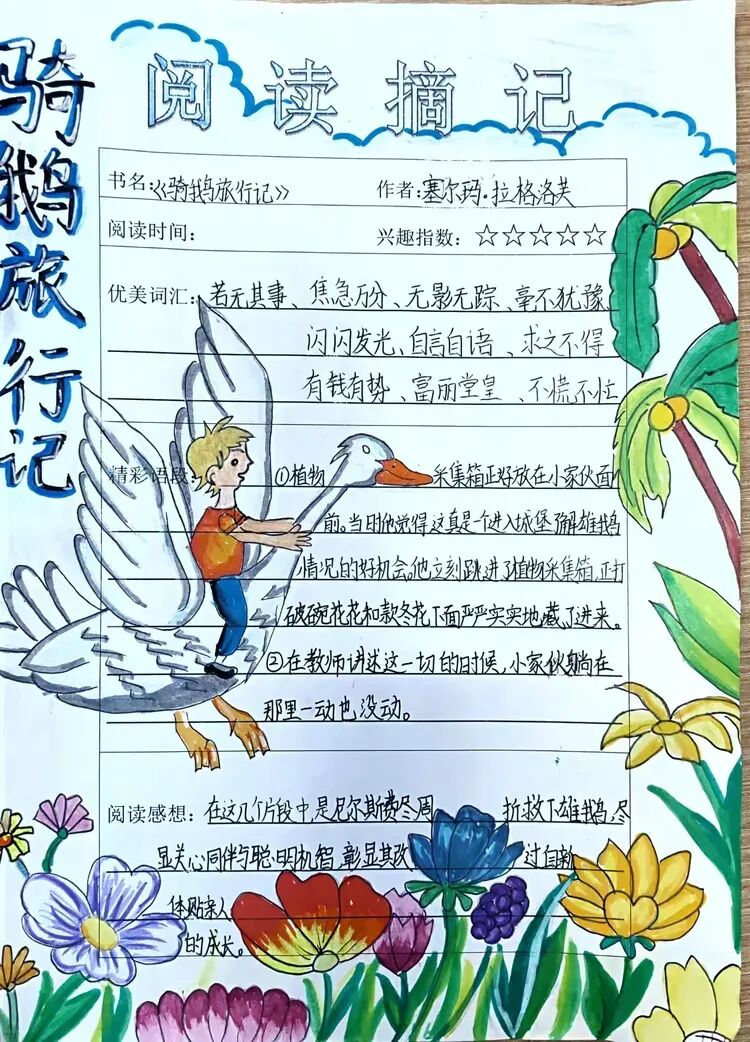 骑鹅旅行记
阅读摘记
书名:《骑鹅旅行记》 作者:塞尔玛·拉格洛芙
阅读时间: 兴趣指数:☆☆☆☆☆
优美词汇:若无其事、焦急万分、无影无踪、毫不犹豫、
闪闪发光、自言自语、求之不得
有钱有势、富丽堂皇、不慌不忙
精彩语段:①植物 采集箱正好放在小家伙面
前。当时他觉得这真是个进入城堡了解雄鹅
情况的好机会。他立刻跳进了植物采集箱,正打
破碗花花和款冬花下面严严实实地藏了进来。
②在教师讲述这一切的时候,小家伙躺在
那里一动也没动。
阅读感想:在这几个片段中,是尼尔斯费尽周 折救下雄鹅,尽
显关心同伴与聪明机智,彰显其改 过自新
体贴亲人
的成长。